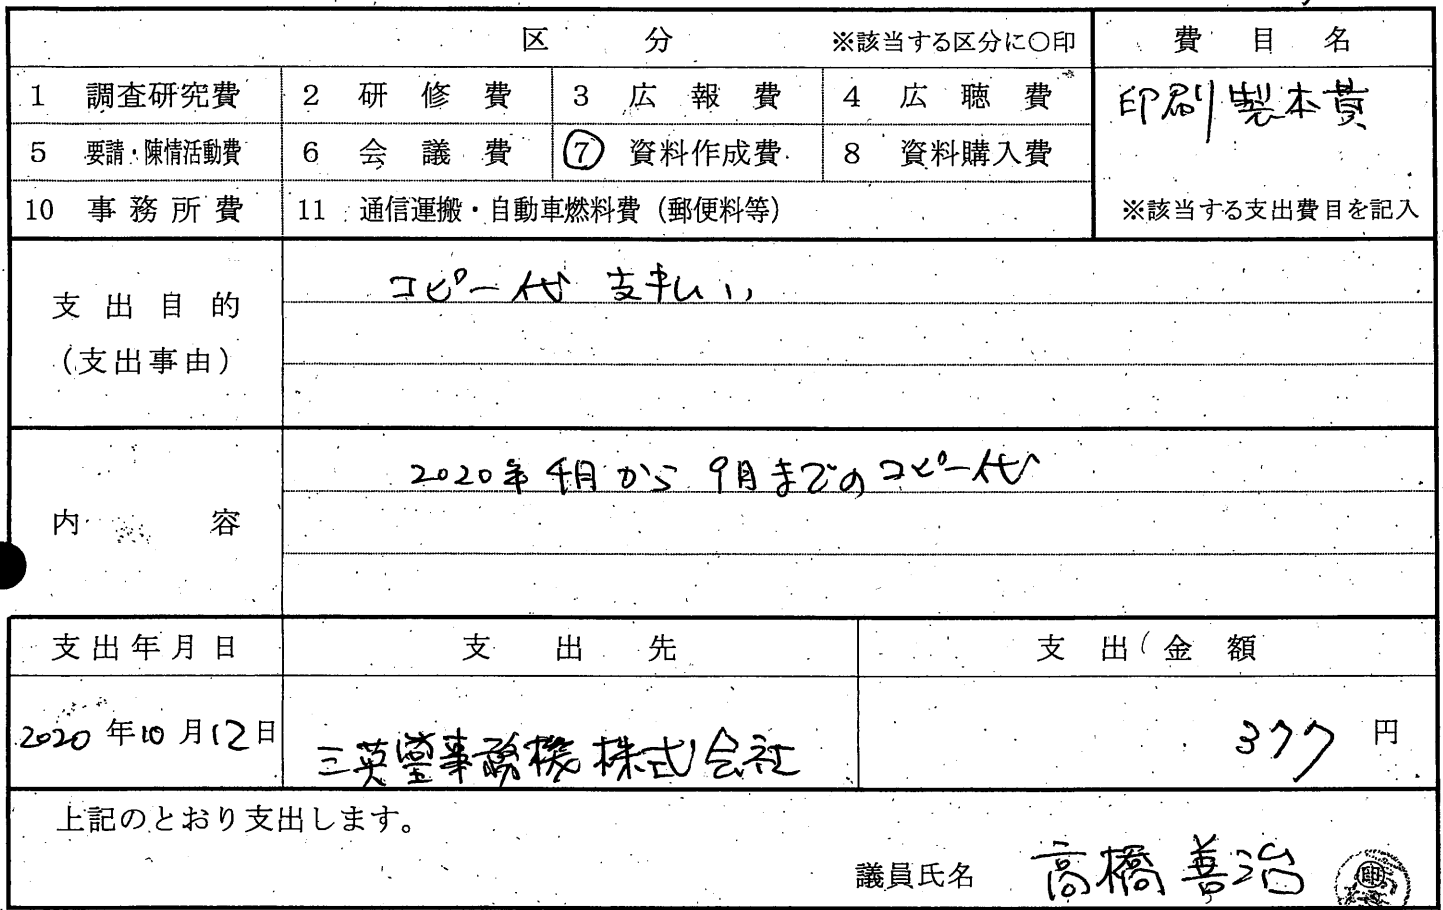 区 分 ※該当する区分に○印 費目名
1 調査研究費 2 研修費 3 広報費 4 広聴費 印刷製本費
5 要請・陳情活動費 6 会議費 ⑦ 資料作成費 8 資料購入費
10 事務所費 11 通信運搬・自動車燃料費（郵便料等） ※該当する支出費目を記入
支出目的
（支出事由）
コピー代 支払い
内容
2020年4月から9月までのコピー代
支出年月日 支出先 支出金額
2020年10月12日 三英堂事務機株式会社 377円
上記のとおり支出します。
議員氏名 高橋善治